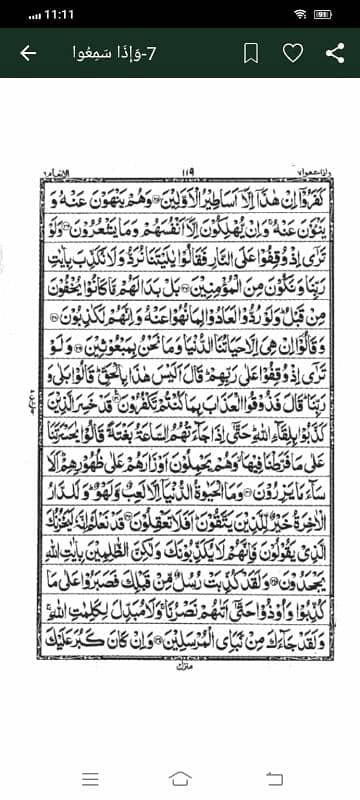 11:11
7-وَإِذَا سَمِعُوا
واذا سمعوا۷ ۱۱۹ الانعام۶
كَفَرُوْۤا اِنْ هٰذَاۤ اِلَّاۤ اَسَاطِيْرُ الْاَوَّلِيْنَ۝۲۵ وَهُمْ يَنْهَوْنَ عَنْهُ وَ
يَنْـَٔوْنَ عَنْهُ ۚ وَاِنْ يُّهْلِكُوْنَ اِلَّاۤ اَنْفُسَهُمْ وَمَا يَشْعُرُوْنَ۝۲۶ وَلَوْ
تَرٰۤى اِذْ وُقِفُوْا عَلَى النَّارِ فَقَالُوْا يٰلَيْتَنَا نُرَدُّ وَلَا نُكَذِّبَ بِاٰيٰتِ
رَبِّنَا وَنَكُوْنَ مِنَ الْمُؤْمِنِيْنَ۝۲۷ بَلْ بَدَا لَهُمْ مَّا كَانُوْا يُخْفُوْنَ
مِنْ قَبْلُ ؕ وَلَوْ رُدُّوْا لَعَادُوْا لِمَا نُهُوْا عَنْهُ وَاِنَّهُمْ لَكٰذِبُوْنَ۝۲۸
وَقَالُوْۤا اِنْ هِىَ اِلَّا حَيَاتُنَا الدُّنْيَا وَمَا نَحْنُ بِمَبْعُوْثِيْنَ۝۲۹ وَلَوْ
تَرٰۤى اِذْ وُقِفُوْا عَلٰى رَبِّهِمْ ؕ قَالَ اَلَيْسَ هٰذَا بِالْحَقِّ ؕ قَالُوْا بَلٰى وَ
رَبِّنَا ؕ قَالَ فَذُوْقُوا الْعَذَابَ بِمَا كُنْتُمْ تَكْفُرُوْنَ۝۳۰ قَدْ خَسِرَ الَّذِيْنَ
كَذَّبُوْا بِلِقَآءِ اللّٰهِ ؕ حَتّٰۤى اِذَا جَآءَتْهُمُ السَّاعَةُ بَغْتَةً قَالُوْا يٰحَسْرَتَنَا
عَلٰى مَا فَرَّطْنَا فِيْهَا ۙ وَهُمْ يَحْمِلُوْنَ اَوْزَارَهُمْ عَلٰى ظُهُوْرِهِمْ ؕ اَلَا
سَآءَ مَا يَزِرُوْنَ۝۳۱ وَمَا الْحَيٰوةُ الدُّنْيَاۤ اِلَّا لَعِبٌ وَّلَهْوٌ ؕ وَلَلدَّارُ
الْاٰخِرَةُ خَيْرٌ لِّلَّذِيْنَ يَتَّقُوْنَ ؕ اَفَلَا تَعْقِلُوْنَ۝۳۲ قَدْ نَعْلَمُ اِنَّهٗ لَيَحْزُنُكَ
الَّذِىْ يَقُوْلُوْنَ فَاِنَّهُمْ لَا يُكَذِّبُوْنَكَ وَلٰكِنَّ الظّٰلِمِيْنَ بِاٰيٰتِ اللّٰهِ
يَجْحَدُوْنَ۝۳۳ وَلَقَدْ كُذِّبَتْ رُسُلٌ مِّنْ قَبْلِكَ فَصَبَرُوْا عَلٰى مَا
كُذِّبُوْا وَاُوْذُوْا حَتّٰۤى اَتٰىهُمْ نَصْرُنَا ۚ وَلَا مُبَدِّلَ لِكَلِمٰتِ اللّٰهِ ۚ
وَلَقَدْ جَآءَكَ مِنْ نَّبَاِى الْمُرْسَلِيْنَ۝۳۴ وَاِنْ كَانَ كَبُرَ عَلَيْكَ
منزل